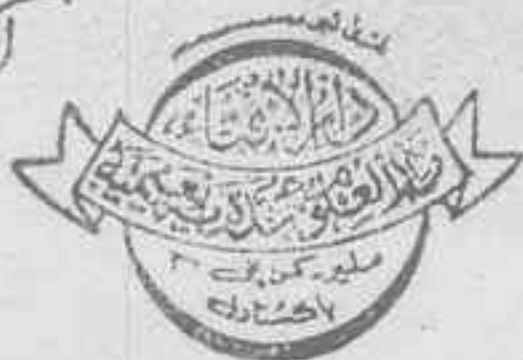 دارالافتاء
دارالعلوم مجددیہ نعیمیہ
ملیر۔ کراچی
پاکستان